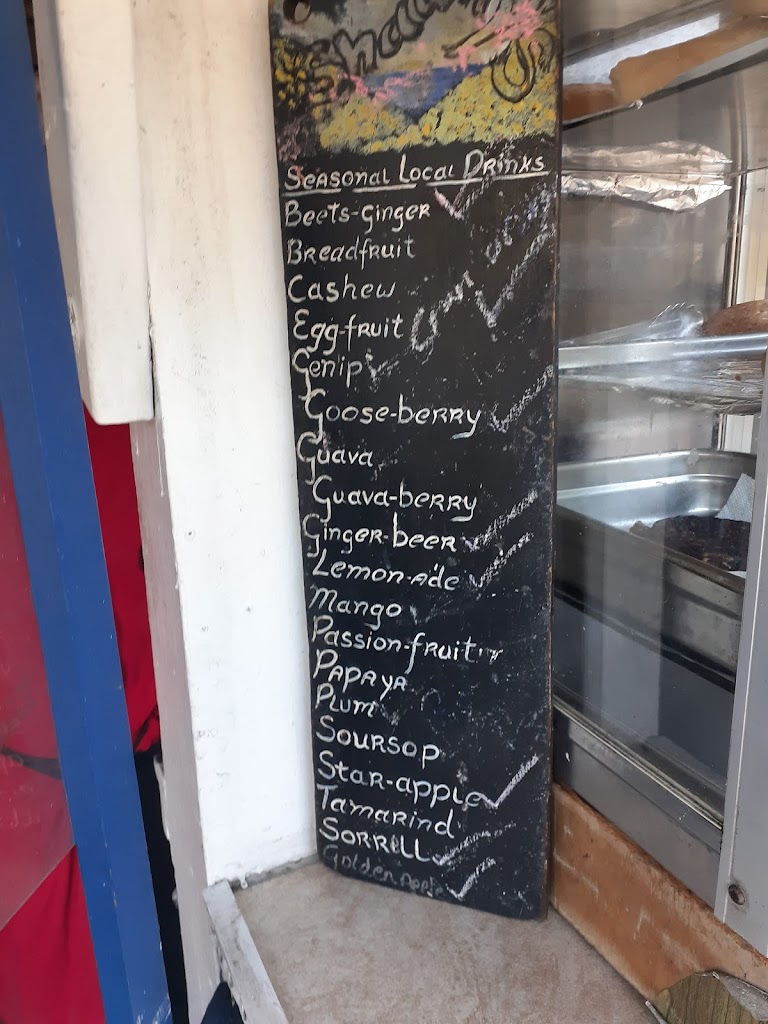 Seasonal Local Drinks
Beets-Ginger
Breadfruit
Cashew
Egg-fruit
Genip
Goose-berry
Guava
Guava-berry
Ginger-beer
Lemon-Ade
Mango
Passion-fruit
Papaya
Plum
Soursop
Star-apple
Tamarind
Sorrell
Golden Apple